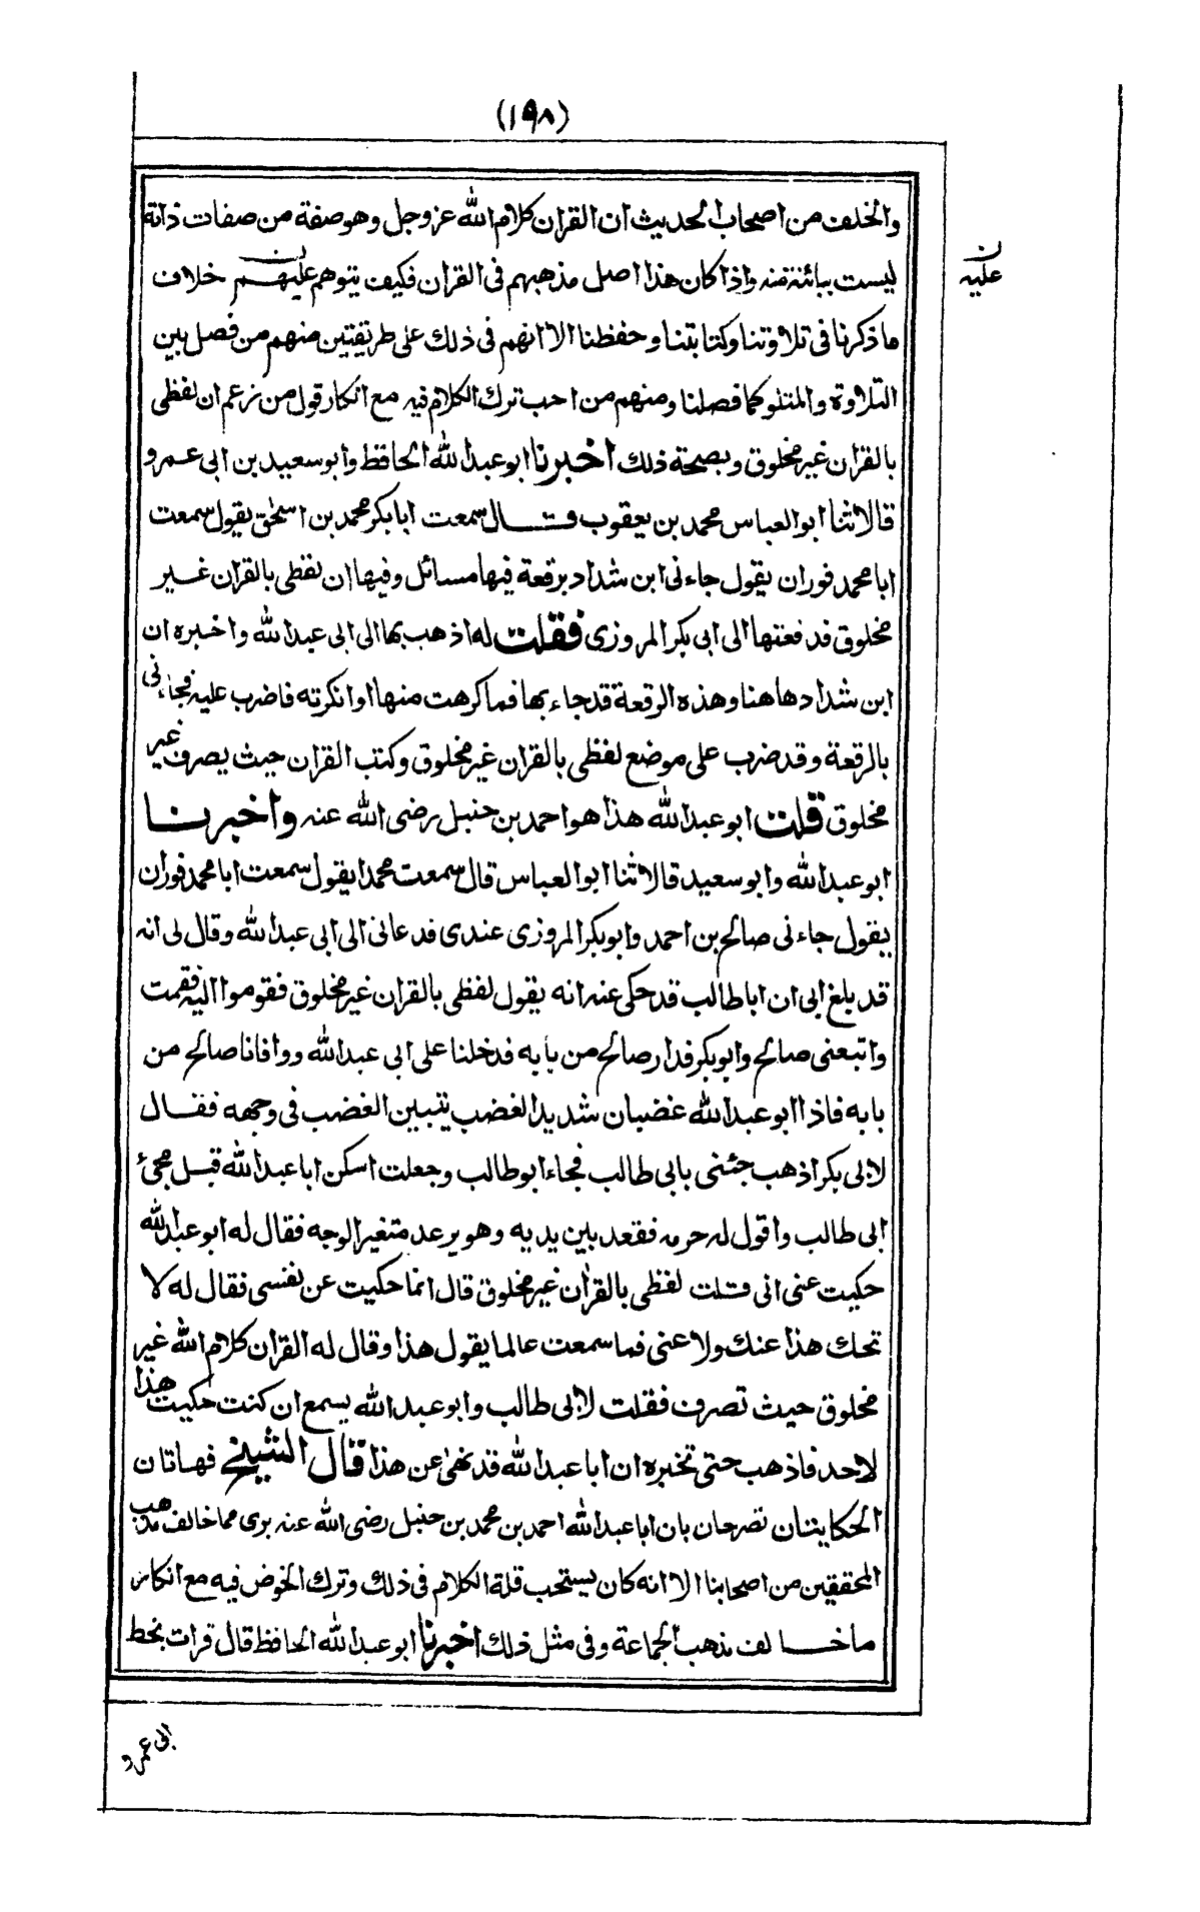 (١٩٨)
والخلف من اصحاب الحديث ان القران كلام الله عز وجل وهو صفة من صفات ذاته
ليست ببائنة منه واذا كان هذا اصل مذهبهم فى القران فكيف يتوهم عليهم خلاف
ن
عليه
ما ذكرنا فى تلاوتنا وكتابتنا وحفظنا الا انهم فى ذلك على طريقتين منهم من فصل بين
التلاوة والمتلو كما فصلنا ومنهم من احب ترك الكلام فيه مع انكار قول من زعم ان لفظى
بالقران غير مخلوق وبصحة ذلك اخبرنا ابو عبد الله الحافظ وابو سعيد بن ابى عمرو
قالا ثنا ابو العباس محمد بن يعقوب قال سمعت ابا بكر محمد بن اسحٰق يقول سمعت
ابا محمد فوران يقول جاءنى ابن شداد برقعة فيها مسائل وفيها ان لفظى بالقران غير
مخلوق فدفعتها الى ابى بكر المروزى فقلت له اذهب بها الى ابى عبد الله واخبره ان
ابن شداد هاهنا وهذه الرقعة قد جاء بها فما كرهت منها او انكرته فاضرب عليه فجاءنى
بالرقعة وقد ضرب على موضع لفظى بالقران غير مخلوق وكتب القران حيث يصرف غير
مخلوق قلت ابو عبد الله هذا هو احمد بن حنبل رضى الله عنه واخبرنا
ابو عبد الله وابو سعيد قالا ثنا ابو العباس قال سمعت محمدا يقول سمعت ابا محمد فوران
يقول جاءنى صالح بن احمد وابو بكر المروزى عندى فدعانى الى ابى عبد الله وقال لى انه
قد بلغ ابى ان ابا طالب قد حكى عنه انه يقول لفظى بالقران غير مخلوق فقوموا اليه فقمت
واتبعنى صالح وابو بكر فدار صالح من بابه فدخلنا على ابى عبد الله ووافانا صالح من
بابه فاذا ابو عبد الله غضبان شديد الغضب يتبين الغضب فى وجهه فقال
لابى بكر اذهب جئنى بابى طالب فجاء ابو طالب وجعلت اسكن ابا عبد الله قبل مجئ
ابى طالب واقول له حرمه فقعد بين يديه وهو يرعد متغير الوجه فقال له ابو عبد الله
حكيت عنى انى قلت لفظى بالقران غير مخلوق قال انما حكيت عن نفسى فقال له لا
تحك هذا عنك ولا عنى فما سمعت عالما يقول هذا وقال له القران كلام الله غير
مخلوق حيث تصرف فقلت لابى طالب وابو عبد الله يسمع ان كنت حكيت هذا
لاحد فاذهب حتى تخبره ان ابا عبد الله قد نهى عن هذا قال الشيخ فهاتان
الحكايتان تصرحان بان ابا عبد الله احمد بن محمد بن حنبل رضى الله عنه برى مما خالف مذهب
المحققين من اصحابنا الا انه كان يستحب قلة الكلام فى ذلك وترك الخوض فيه مع انكار
ما خالف مذهب الجماعة وفى مثل ذلك اخبرنا ابو عبد الله الحافظ قال قرات بخط
ابى عمرو